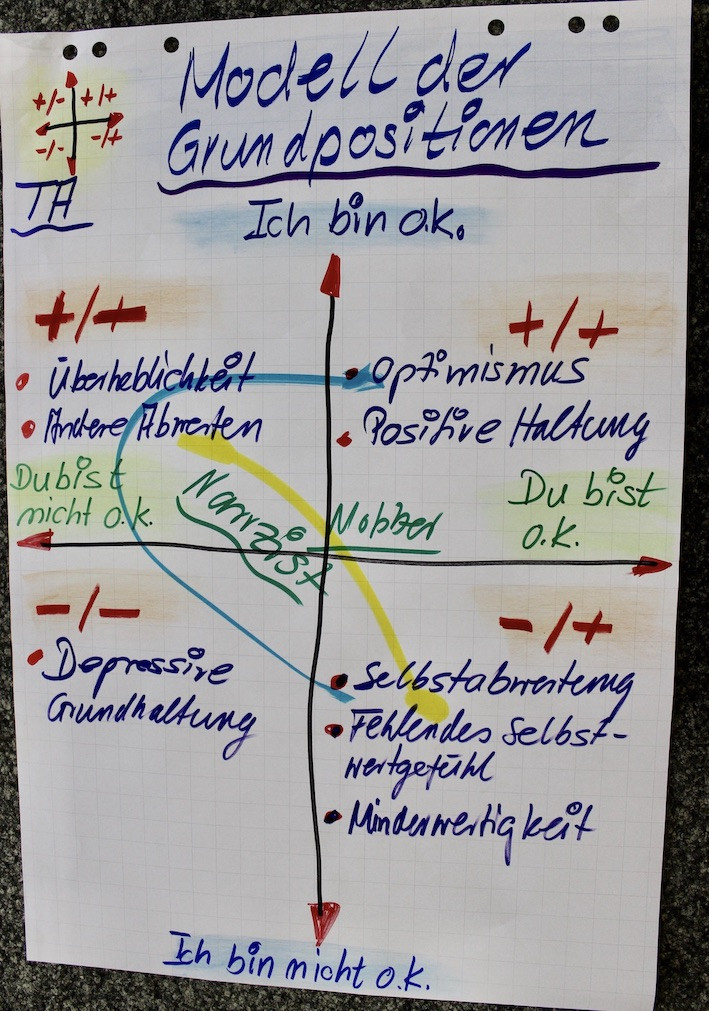 Modell der
Grundpositionen
+/- +/+
-/- -/+
TA
Ich bin o.k.
+/+
• Überheblichkeit
• Andere Abwerten
+/+
• Optimismus
• Positive Haltung
Du bist
nicht o.k.
Narzisst
Mobber
Du bist
o.k.
-/-
• Depressive
Grundhaltung
-/+
• Selbstabwerterug
• Fehlendes Selbst-
wertgefühl
• Minderwertigkeit
Ich bin nicht o.k.